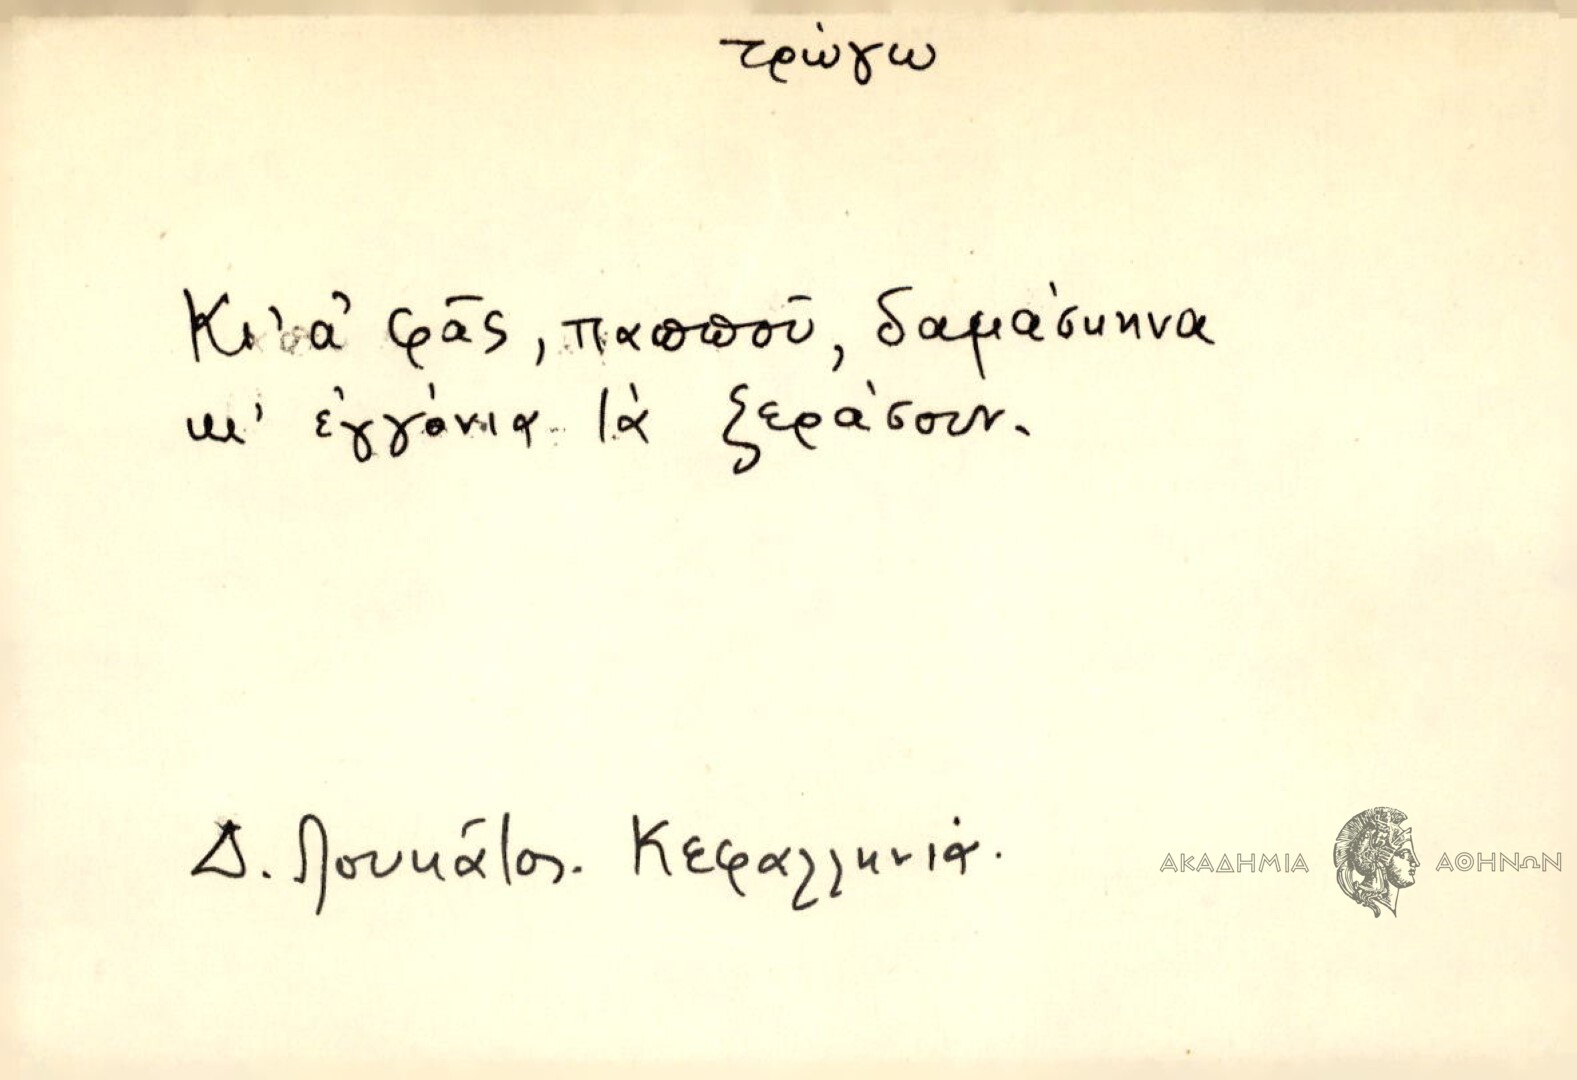 τρώγω
Κι' ἀ' φᾶς, παπποῦ, δαμάσκηνα
κι' ἐγγόνια τὰ ξεράσουν.
Δ. Λουκᾶτος. Κεφαλληνιά.
ΑΚΑΔΗΜΙΑ ΑΘΗΝΩΝ